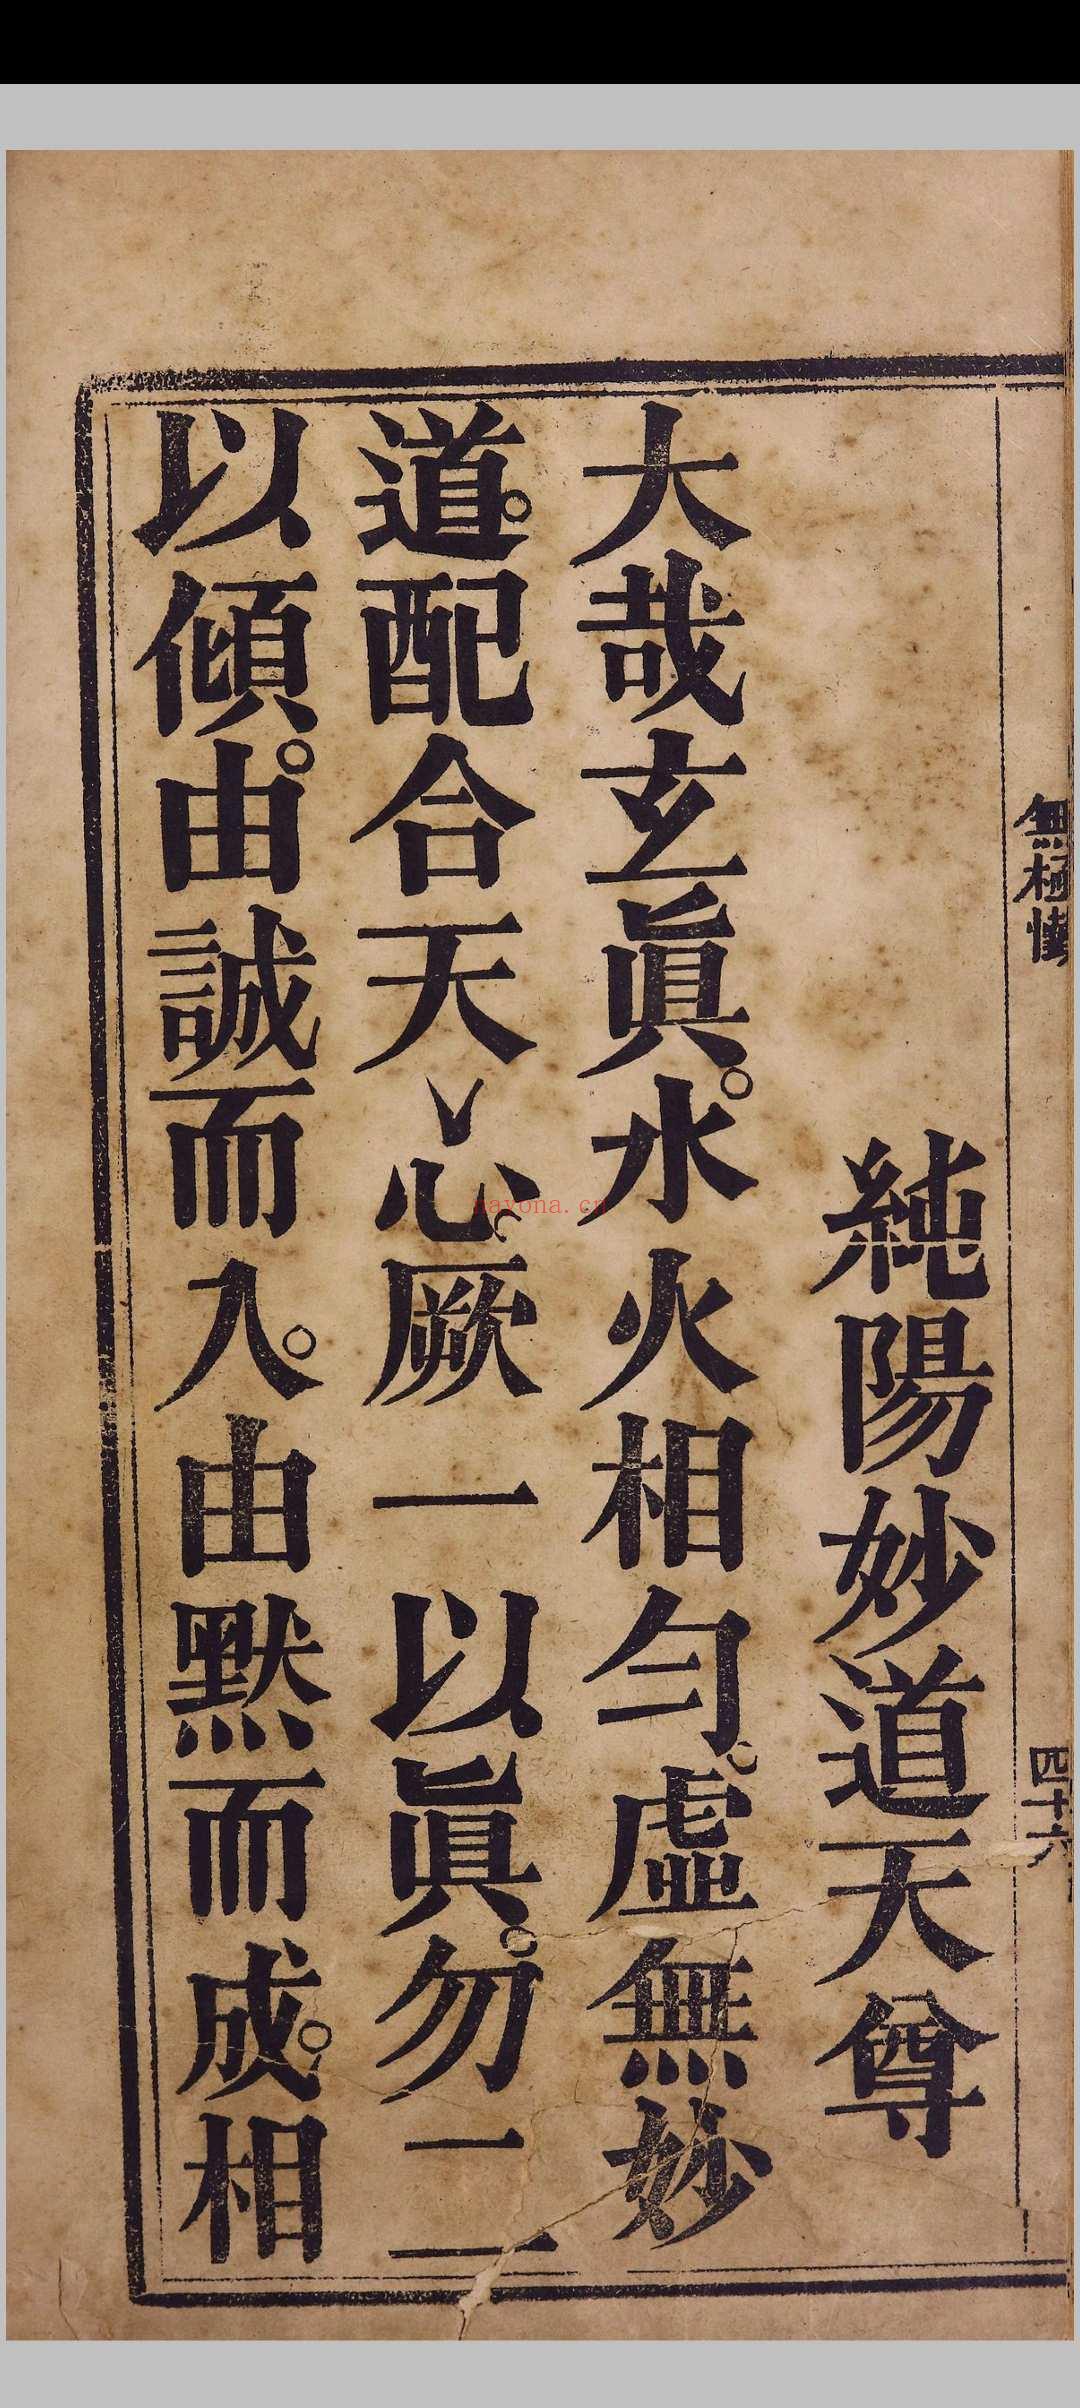 無極懺
四十六
純陽妙道天尊
大哉玄眞。水火相勻。虛無妙
道。配合天心。厥一以眞。勿二
以傾。由誠而入。由默而成。相
nayona.cn